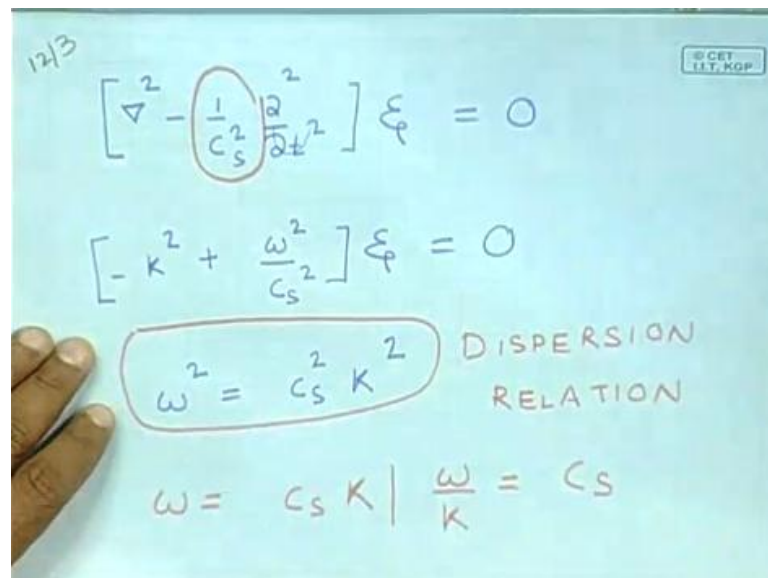 12/3
© CET
I.I.T, KGP
[∇² - 1/C_s² ∂²/∂t²] ξ = 0
[- K² + ω²/C_s²] ξ = 0
ω² = C_s² K² DISPERSION
RELATION
ω = C_s K | ω/K = C_s